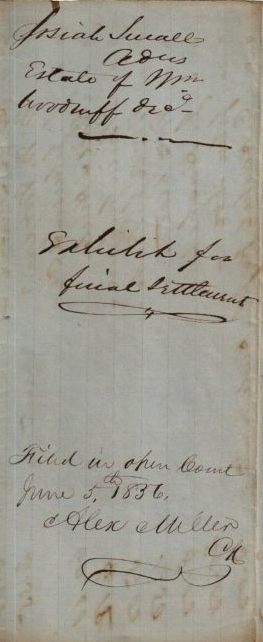 Josiah Small
Adms
Estate of Wm
Woodruff Decd
Exhibit for
final Settlement
Filed in open Court
June 5th 1836.
Alex Miller
Clk